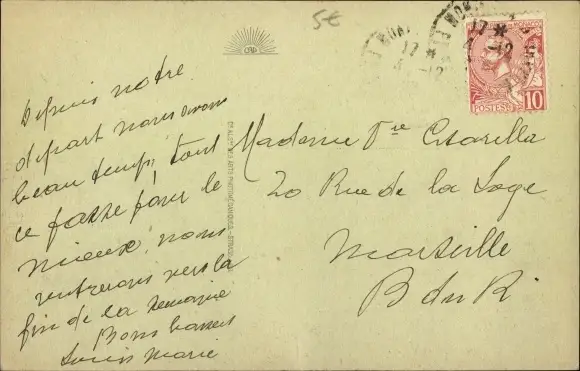 5€
17 *
-12
17 *
-12
POSTES 10
Depuis notre
depart nous avons
beau temps, tout
ce passe pour le
mieux, nous
rentrerons vers la
fin de la semaine
Bons baisers
Louis Marie
Madame Vve
20 Rue de la Loge
Marseille
B du R